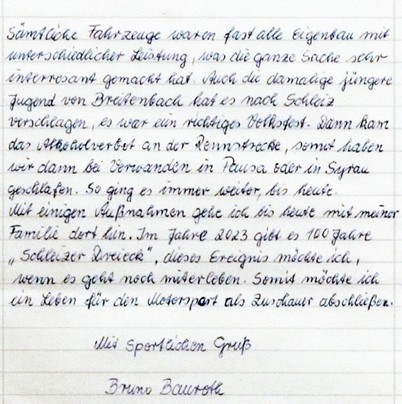 Sämtliche Fahrzeuge waren fast alle Eigenbau mit
unterschiedlicher Leistung, was die ganze Sache sehr
interresant gemacht hat. Auch die damalige jüngere
Jugend von Breitenbach hat es nach Schleiz
verschlagen, es war ein richtiges Volksfest. Dann kam
das Alkoholverbot an der Rennstrecke, somit haben
wir dann bei Verwanden in Pausa oder in Syrau
geschlafen. So ging es immer weiter, bis heute.
Mit einigen Außnahmen gehe ich bis heute mit meiner
Familie dort hin. Im Jahre 2023 gibt es 100 Jahre
„Schleizer Dreieck", dieses Ereignis möchte ich,
wenn es geht noch miterleben. Somit möchte ich
ein Leben für den Motorsport als Zuschauer abschließen.
Mit Sportlichen Gruß
Bruno Bauroth